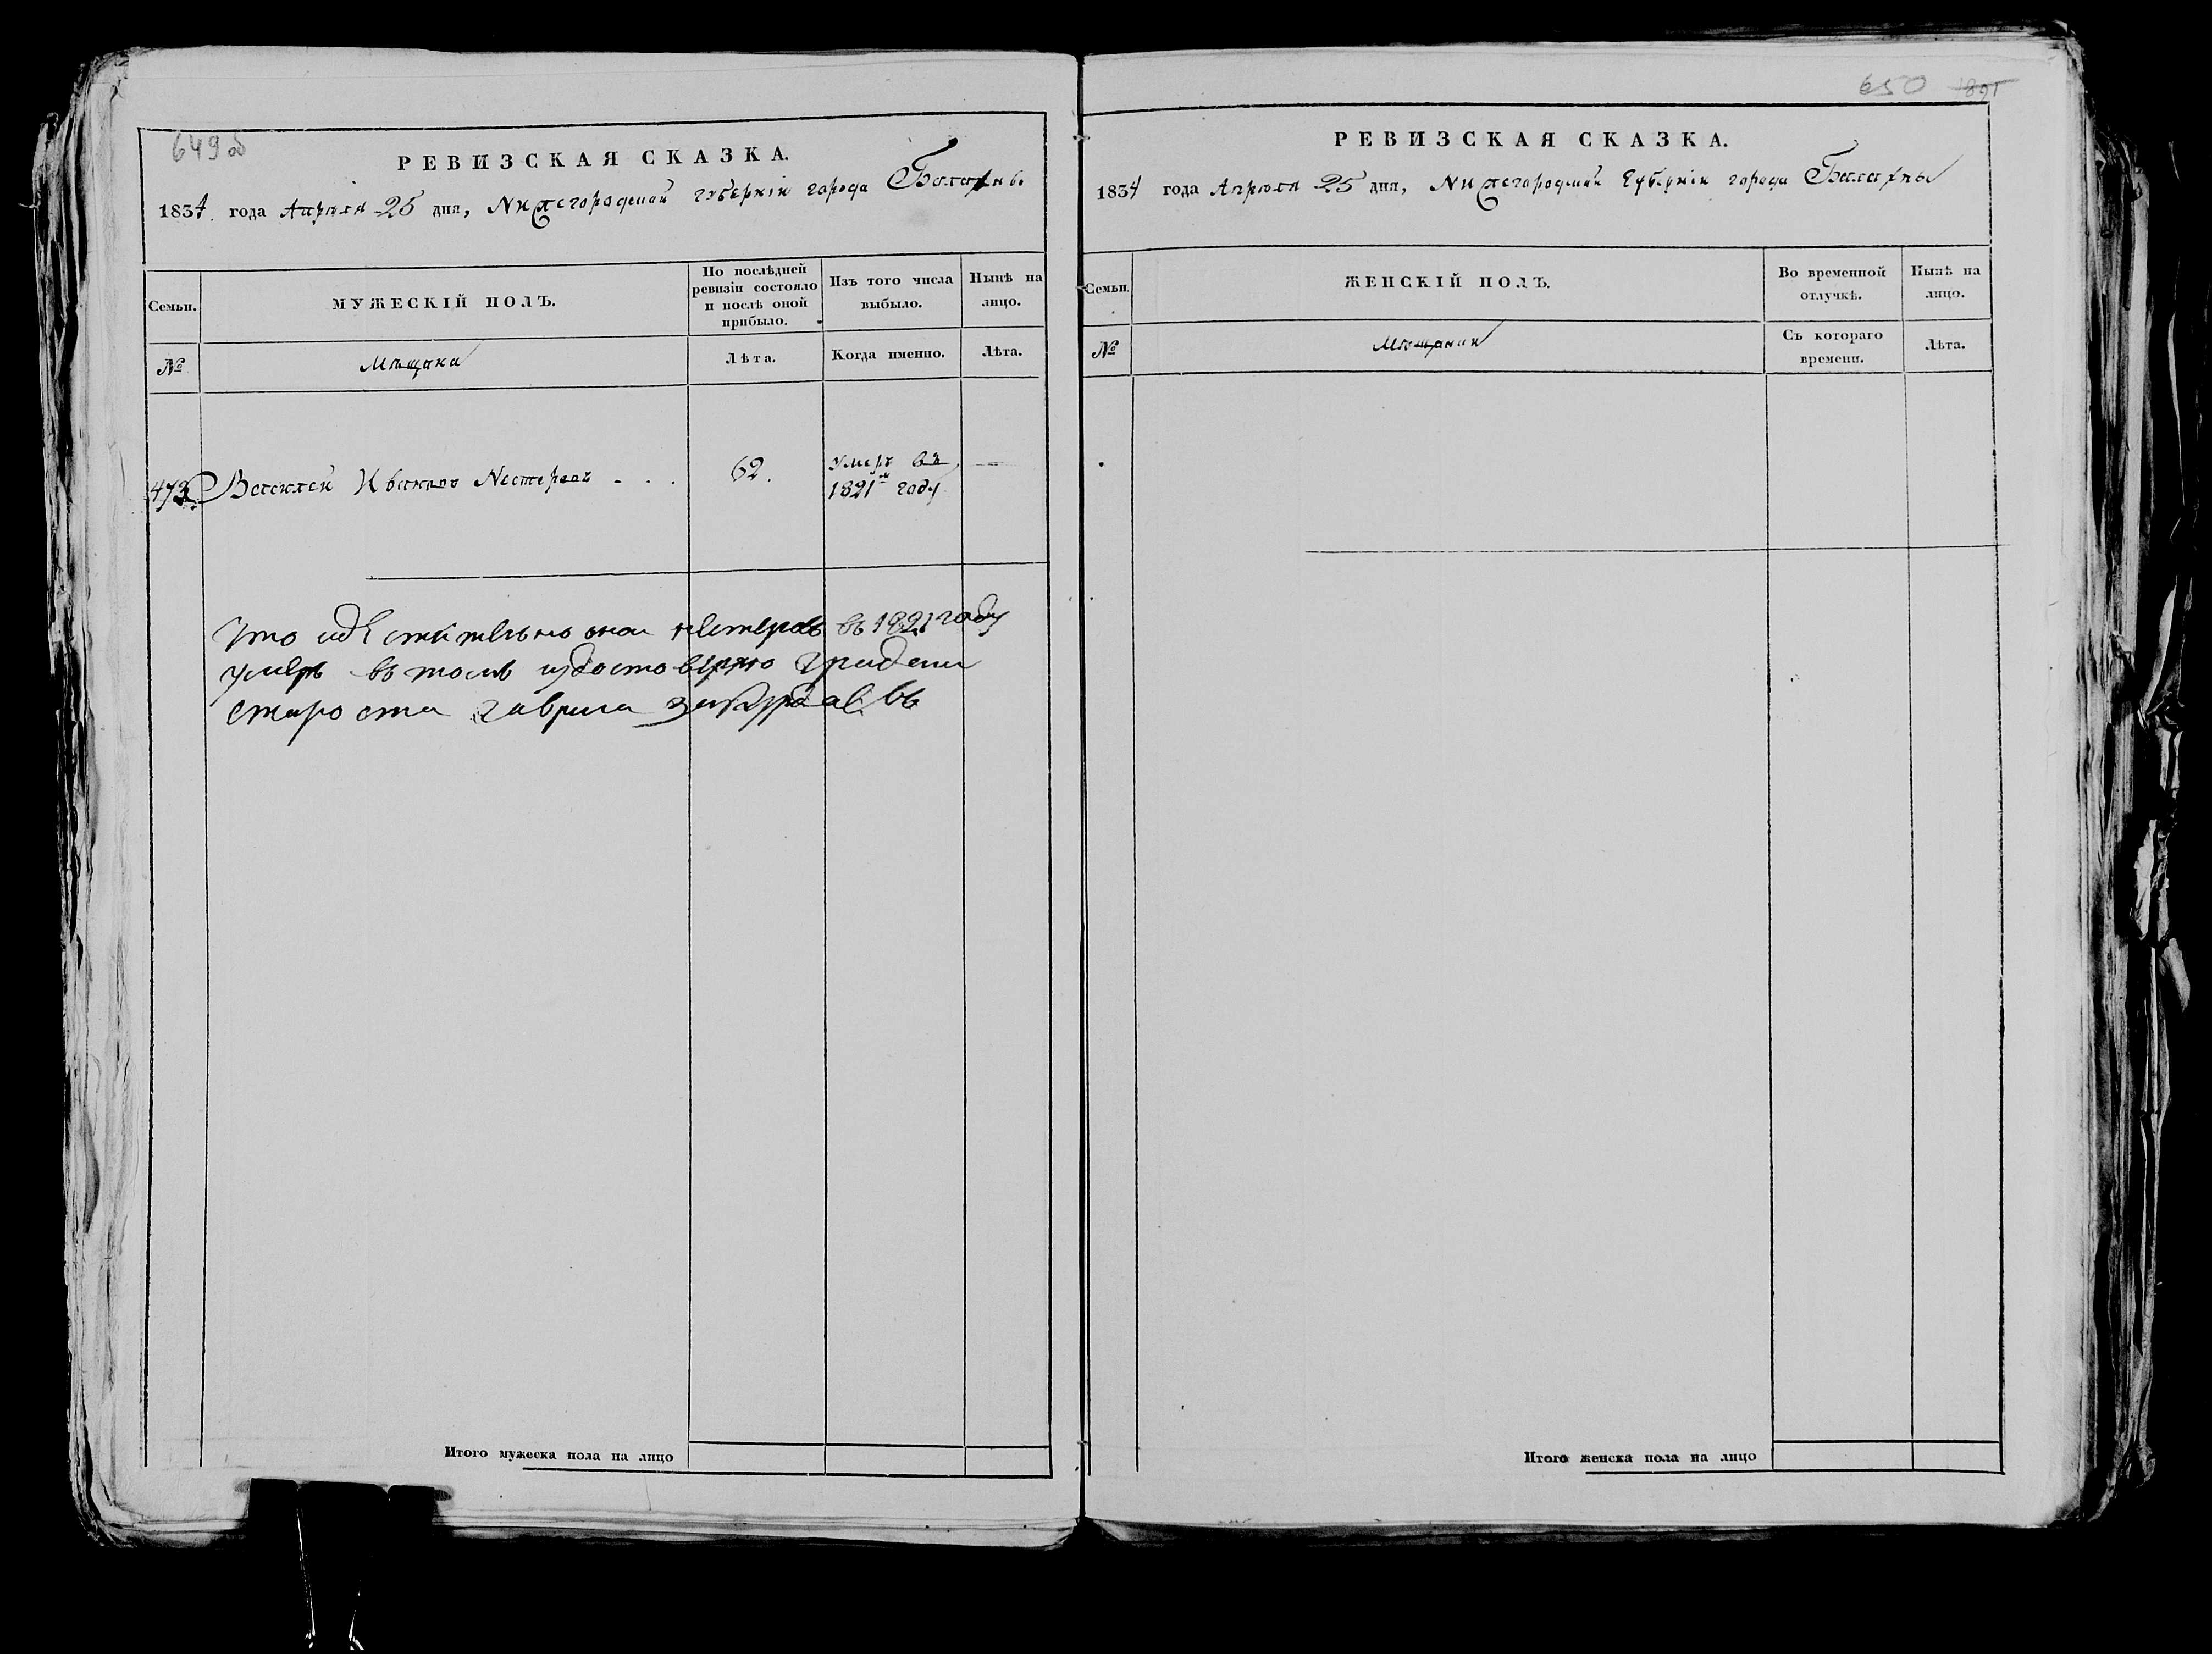 649 об
РЕВИЗСКАЯ СКАЗКА.
1834 года Апрѣля 25 дня, Нижегородской губернiи города Балахны
Семьи.
МУЖЕСКIЙ ПОЛЪ.
По послѣдней ревизiи состояло и послѣ оной прибыло.
Изъ того числа выбыло.
Нынѣ на лицо.
№
Мѣщане
Лѣта.
Когда именно.
Лѣта.
473 Василей Ивановъ Нестеровъ . . . 62. умеръ въ
1821м году
Что идѣствительно онои нестеровъ въ 1821 году
умеръ въ томъ удостоверяю
староста гаврила
Итого мужеска пола на лицо
650 1891
РЕВИЗСКАЯ СКАЗКА.
1834 года Апрѣля 25 дня, Нижегородской Губернiи города Балахны
Семьи.
ЖЕНСКIЙ ПОЛЪ.
Во временной отлучкѣ.
Нынѣ на лицо.
№
Съ котораго времени.
Лѣта.
Итого женска пола на лицо